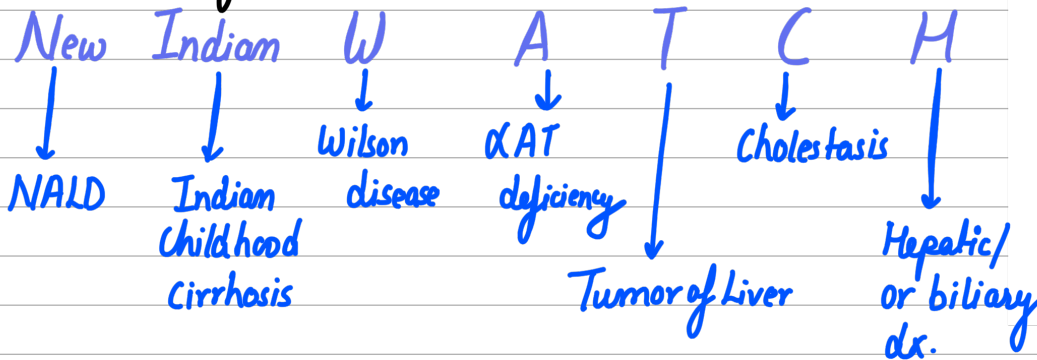 New Indian W A T C H
NALD
Indian
Childhood
Cirrhosis
Wilson
disease
αAT
deficiency
Tumor of Liver
Cholestasis
Hepatic/
or biliary
dx.